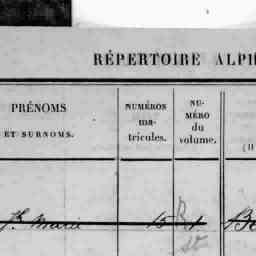 RÉPERTOIRE ALPH
PRÉNOMS
ET SURNOMS.
NUMÉROS
ma-
tricules.
NU-
MÉRO
du
volume.
Marie